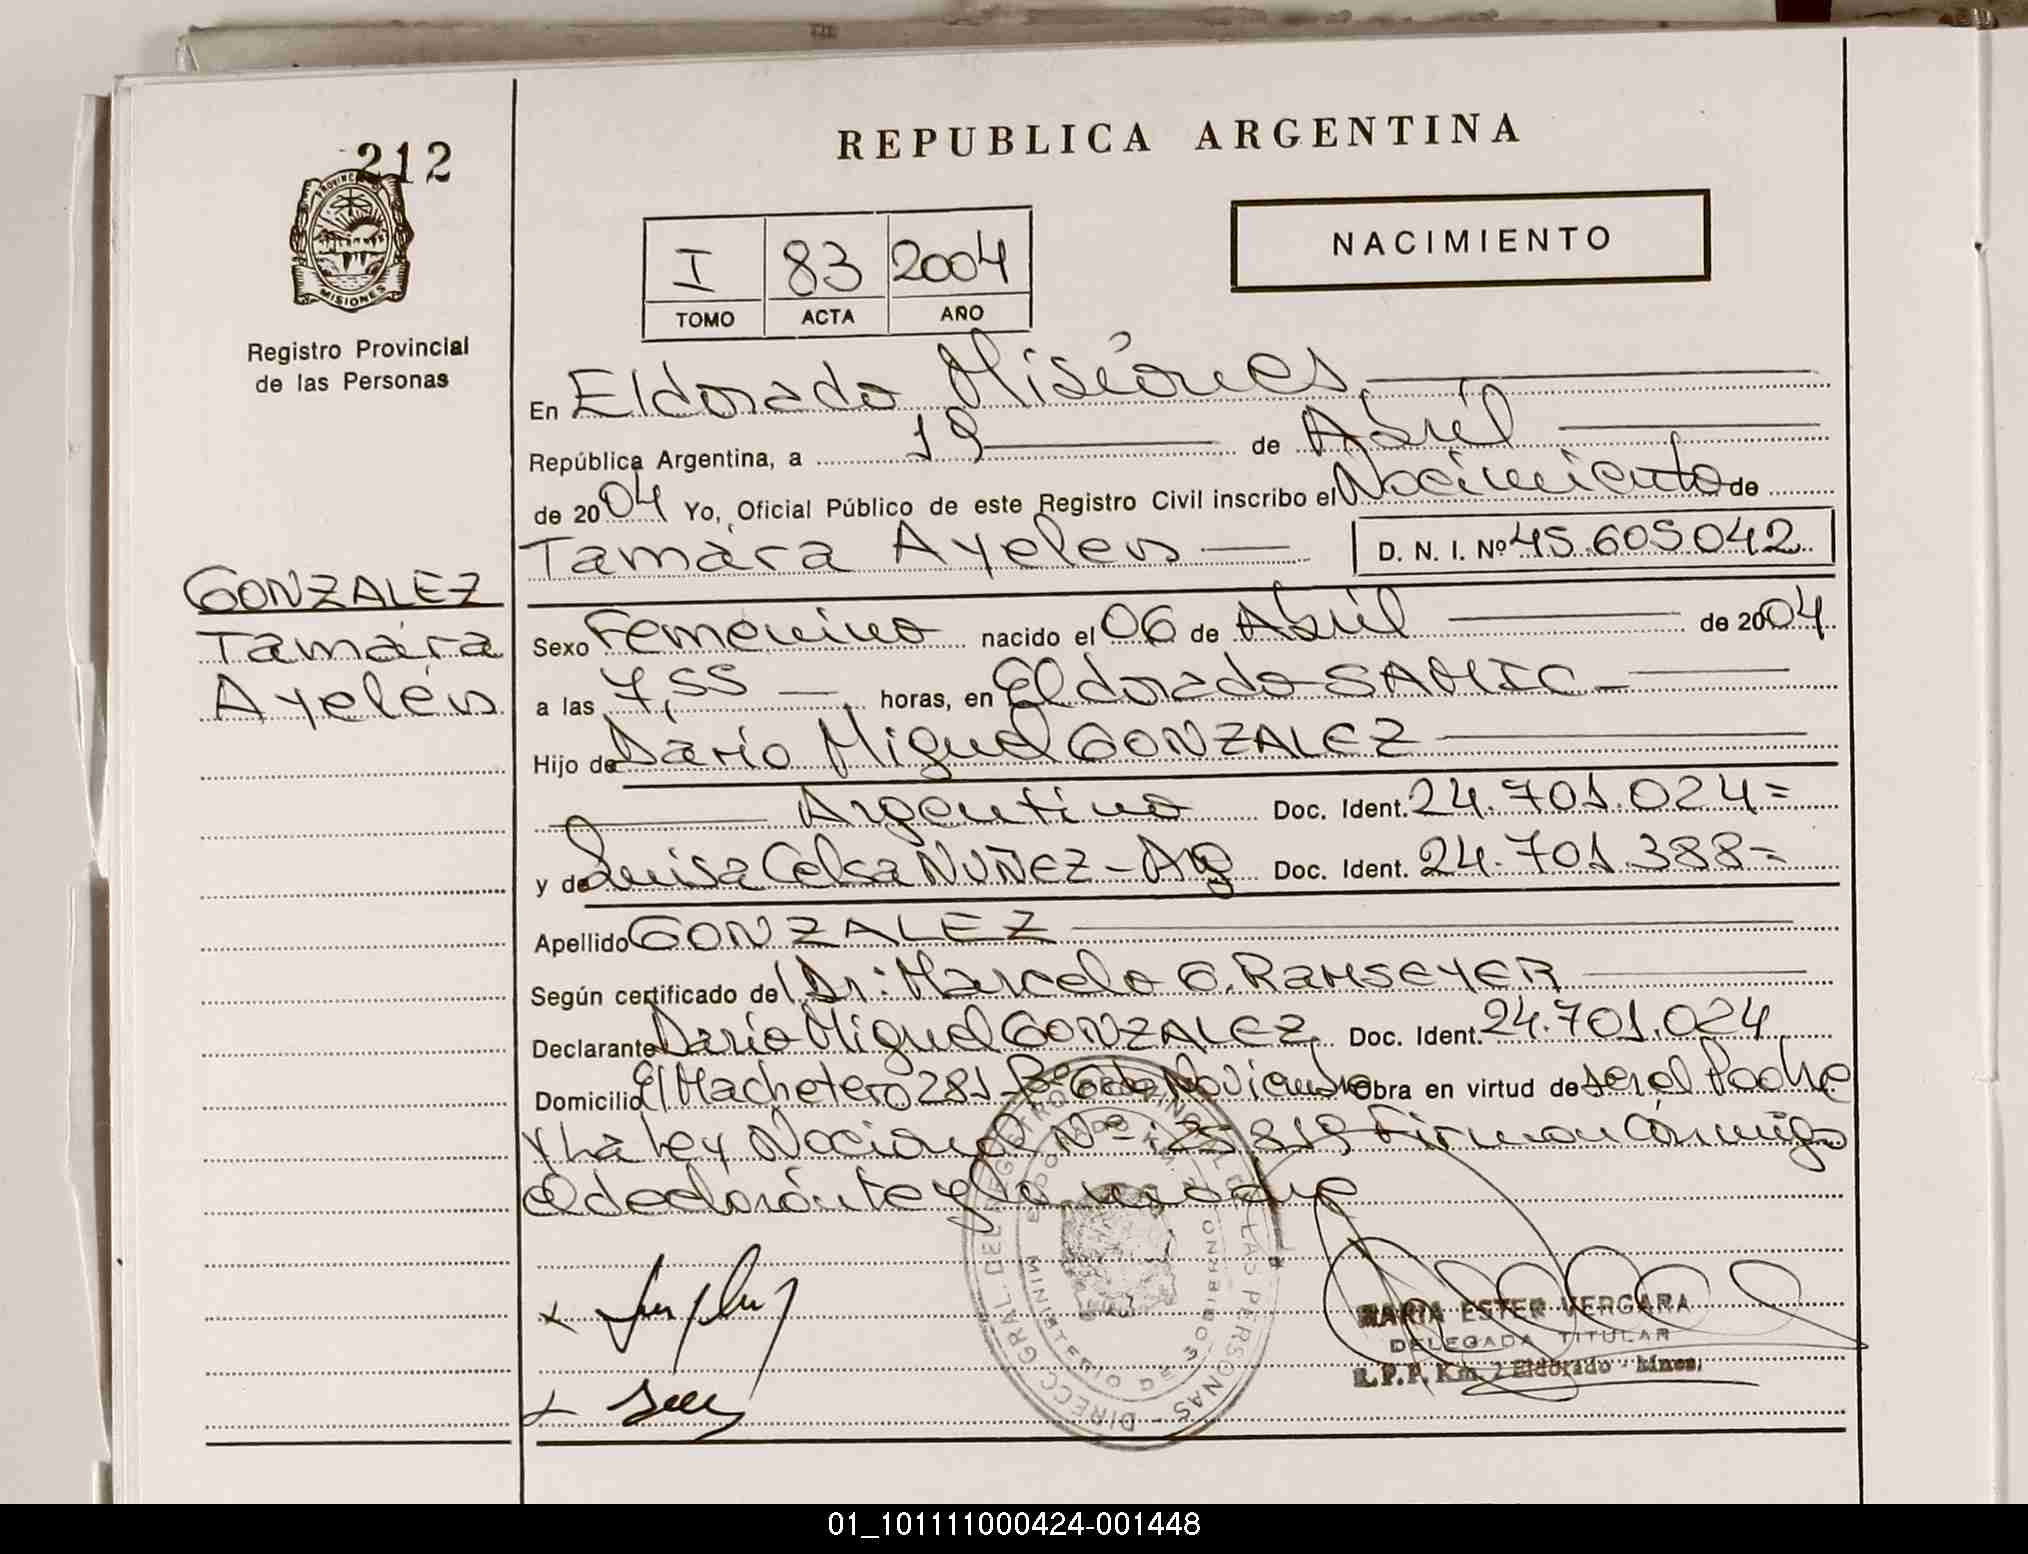 212
REPUBLICA ARGENTINA
PROVINCIA
MISIONES
Registro Provincial
de las Personas
I 83 2004
TOMO ACTA AÑO
NACIMIENTO
En Eldorado Misiones
República Argentina, a 19 de Abril
de 2004 Yo, Oficial Público de este Registro Civil inscribo el Nacimiento de
Tamara Ayelen D. N. I. Nº 45.605.042
GONZALEZ
Tamara
Ayelén
Sexo Femenino nacido el 06 de Abril de 2004
a las 7,55 horas, en Eldorado-SAMIC-
Hijo de Dario Miguel GONZALEZ
Argentino Doc. Ident. 24.701.024=
y de Luisa Celsa NUÑEZ-Arg Doc. Ident. 24.701.388=
Apellido GONZALEZ
Según certificado del Dr: Marcelo G. RAMSEYER
Declarante Dario Miguel GONZALEZ Doc. Ident. 24.701.024
Domicilio El Machetero 281-Bº 6 de Noviembre Obra en virtud de ser el Padre
y La Ley Nacional Nº: 25.819 Firman Conmigo
el declarante y la madre
DIRECC. GRAL. DEL REGISTRO PROVINCIAL DE LAS PERSONAS
MINISTERIO DE GOBIERNO
MARIA ESTER VERGARA
DELEGADA TITULAR
R.P.P. Km. 2 Eldorado - Mnes.
01_101111000424-001448